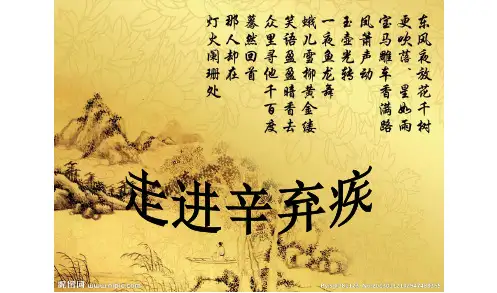 东风夜放花千树
更吹落、星如雨
宝马雕车香满路
凤萧声动
玉壶光转
一夜鱼龙舞
蛾儿雪柳黄金缕
笑语盈盈暗香去
众里寻他千百度
蓦然回首
那人却在
灯火阑珊处
走进辛弃疾
昵图网 www.nipic.com